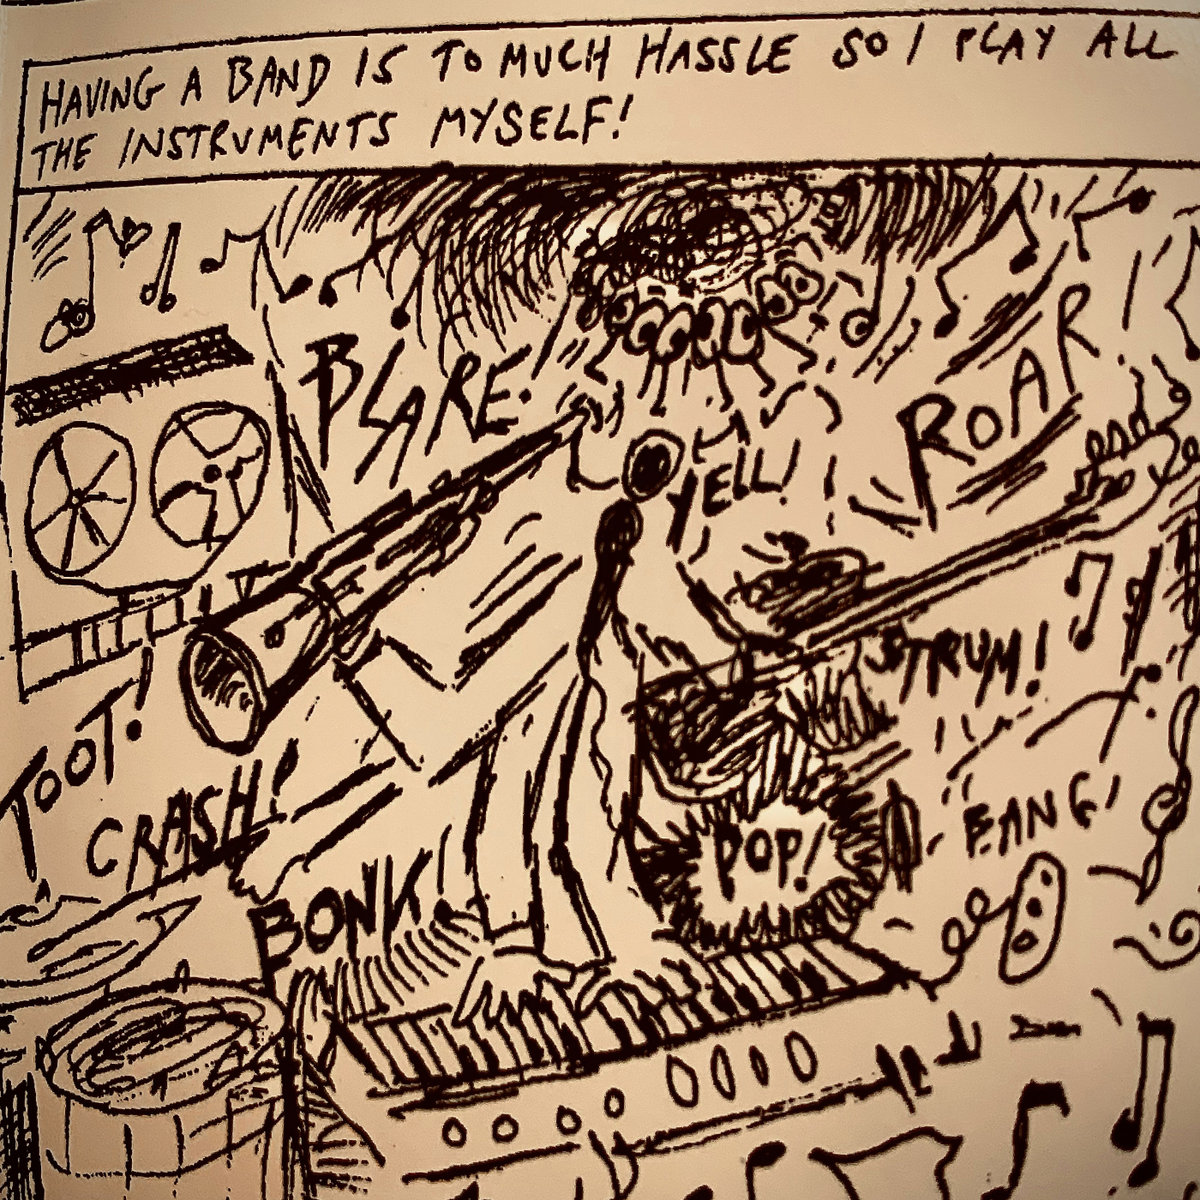 HAVING A BAND IS TO MUCH HASSLE SO I PLAY ALL
THE INSTRUMENTS MYSELF!
BLARE.
ROAR!
YELL!
STRUM!
TOOT!
CRASH!
POP!
BANG!
BONK!